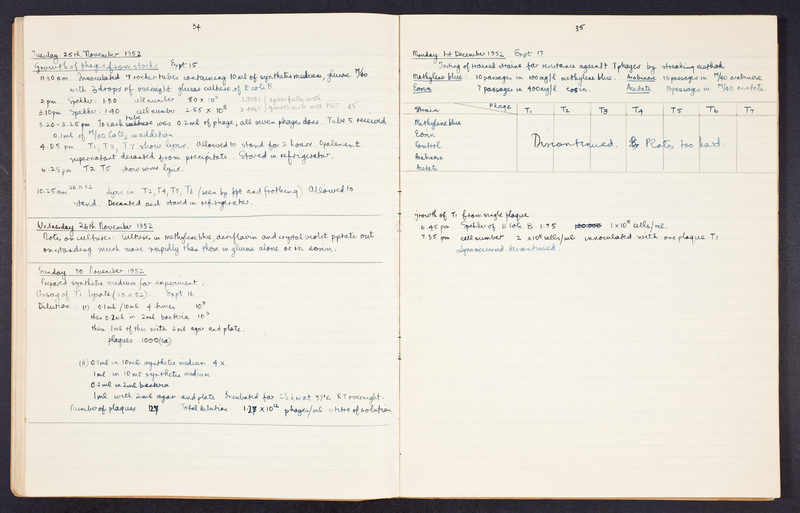 34
Tuesday 25th November 1952
Growth of phages from stocks Expt 15
11.30 am. Innoculated 7 rocker tubes containing 10 ml of synthetic medium, glucose M/40
with 3 drops of overnight glucose culture of E coli B.
2 pm Spekker: 1.30 cell number 80 x 10
3.10pm Spekker: 1.40 cell number 2.55 x 10⁸
3.20 - 3.25 pm To each tube was 0.2ml of phage, all seven phages done. Tube 5 received
0.1ml of M/30 CaCl₂ in addition
4.05 pm T1, T3, T7 show lysis. Allowed to stand for 2 hours. Opalescent
supernatant decanted from precipitate. Stored in refrigerator.
6.25pm T2 T5 show some lysis.
10.25am 26.11.52 lysis in T2, T4, T5, T6 (seen by ppt and frothing) Allowed to
stand. Decanted and stored in refrigerator.
Wednesday 26th November 1952
Notes on cultures: Cultures in methylene blue, acriflavin and crystal violet pptate out
on standing much more rapidly than those in glucose alone or in eosin.
Sunday 30 November 1952
Prepared synthetic medium for experiment.
Assay of T1 lysate (25.11.52). Expt 16
Dilution: (i) 0.1ml /10ml 4 times 10⁸
then 0.2ml in 2ml bacteria 10⁹
then 1ml of this with 2ml agar and plate.
plaques 1000 (ca)
(ii) 0.1ml in 10ml synthetic medium 4 x
1ml in 10ml synthetic medium
0.2ml in 2ml bacteria
1ml with 2ml agar and plate Incubated for 2½ hrs at 37°C RT overnight.
Number of plaques Total dilution x 10¹² phages/ml = titre of solution
35
Monday 1st December 1952 Expt 17
Testing of trained strains for resistance against T phages by streaking method
Methylene blue: 10 passages in 100 mg/l methylene blue. Arabinose 13 passages in M/40 arabinose
Eosin 7 passages in 400mg/l eosin. Acetate 13 passages in M/40 acetate
Strain Phage T1 T2 T3 T4 T5 T6 T7
Methylene blue
Eosin
Control Discontinued. Plates too hard.
Arabinose
Acetate
Growth of T1 from single plaque
6.45 pm Spekker of E coli B 1.75 1x10⁸ cells/ml.
7.35 pm cell number 2 x10⁸ cells/ml innoculated with one plaque T1
Lysis occurred discontinued